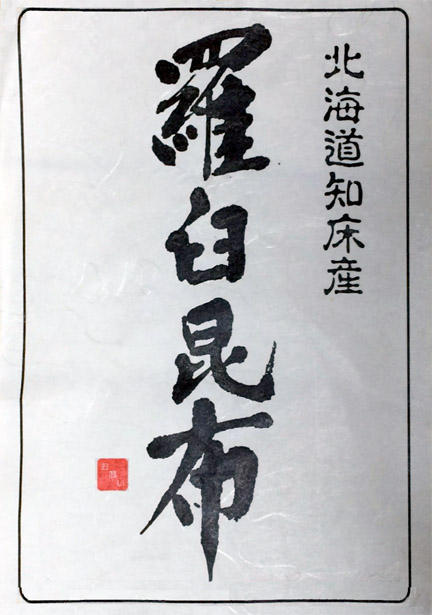 北海道知床産
羅臼昆布